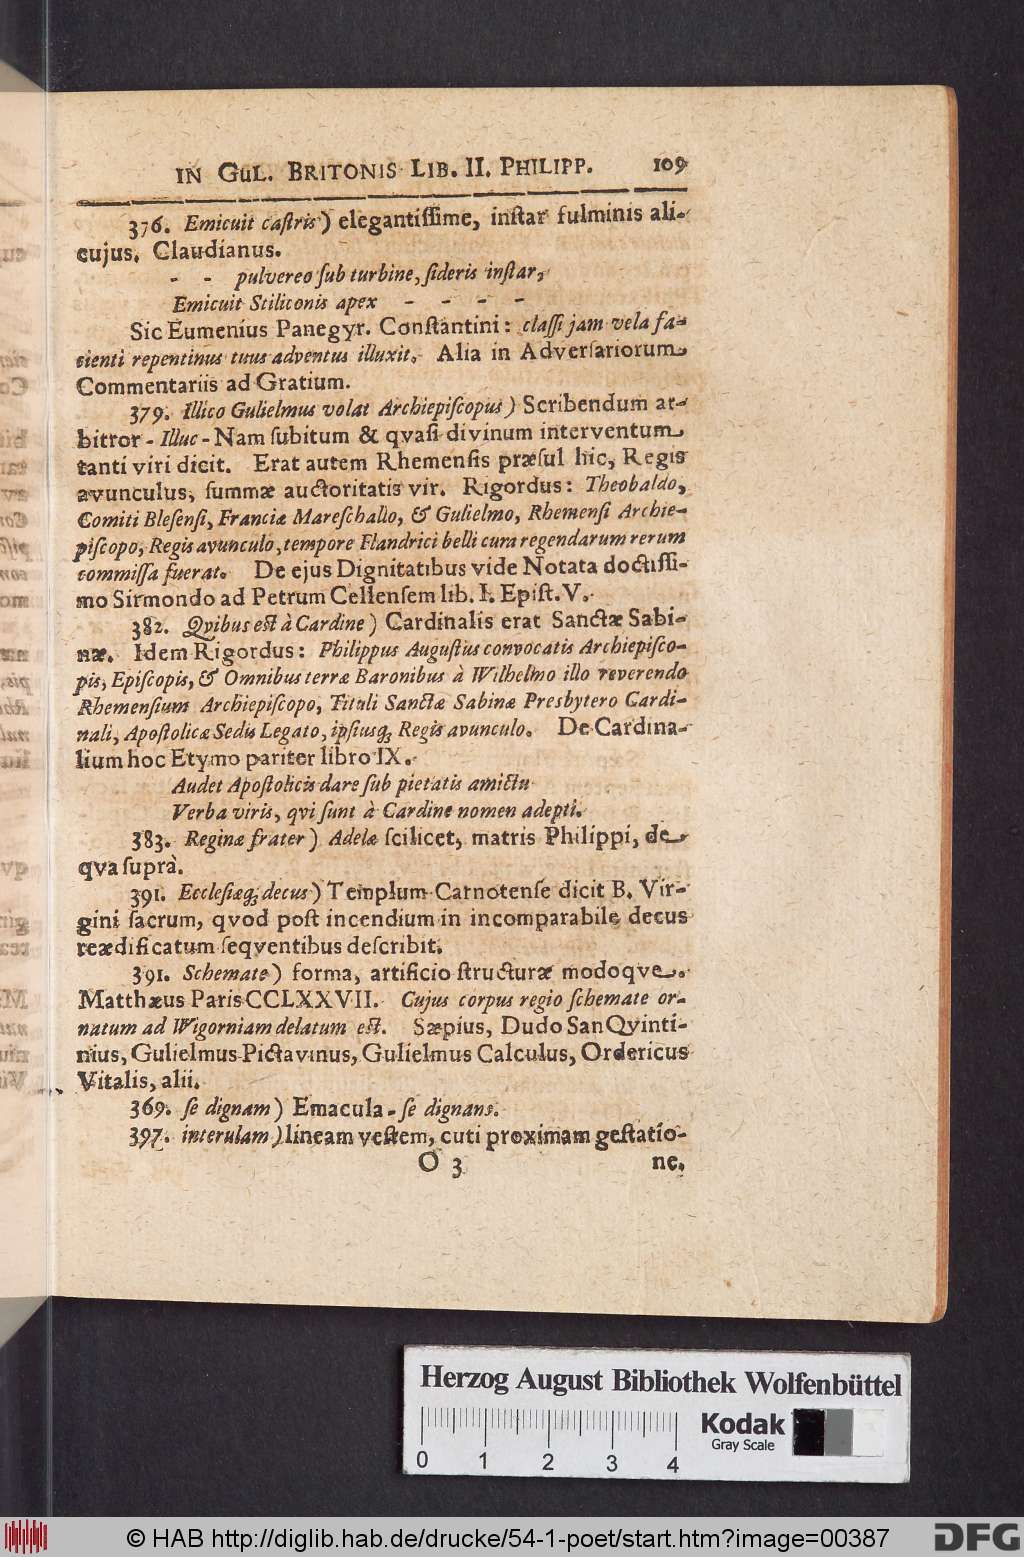 IN GUL. BRITONIS LIB. II. PHILIPP. 109
376. Emicuit caſtris) elegantiſſime, inſtar fulminis ali-
cujus. Claudianus.
- - pulvereo ſub turbine, ſideris inſtar,
Emicuit Stiliconis apex - - - -
Sic Eumenius Panegyr. Conſtantini: claſſi jam vela fa-
cienti repentinus tuus adventus illuxit. Alia in Adverſariorum
Commentariis ad Gratium.
379. Illico Gulielmus volat Archiepiſcopus) Scribendum ar-
bitror - Illuc - Nam ſubitum & qvaſi divinum interventum
tanti viri dicit. Erat autem Rhemenſis præſul hic, Regis
avunculus, ſummæ auctoritatis vir. Rigordus: Theobaldo,
Comiti Bleſenſi, Franciæ Mareſchallo, & Gulielmo, Rhemenſi Archie-
piſcopo, Regis avunculo, tempore Flandrici belli cura regendarum rerum
commiſſa fuerat. De ejus Dignitatibus vide Notata doctiſſi-
mo Sirmondo ad Petrum Cellenſem lib. I. Epiſt. V.
382. Qvibus est à Cardine) Cardinalis erat Sanctæ Sabi-
næ. Idem Rigordus: Philippus Auguſtus convocatis Archiepiſco-
pis, Epiſcopis, & Omnibus terræ Baronibus à Wilhelmo illo reverendo
Rhemenſium Archiepiſcopo, Tituli Sanctæ Sabinæ Presbytero Cardi-
nali, Apoſtolicæ Sedis Legato, ipſiusq; Regis avunculo. De Cardina-
lium hoc Etymo pariter libro IX.
Audet Apoſtolicis dare ſub pietatis amictu
Verba viris, qvi ſunt à Cardine nomen adepti.
383. Reginæ frater) Adelæ ſcilicet, matris Philippi, de
qva ſuprà.
391. Eccleſiæq; decus) Templum Carnotenſe dicit B. Vir-
gini ſacrum, qvod poſt incendium in incomparabile decus
reædificatum ſeqventibus deſcribit.
391. Schemate) forma, artificio ſtructuræ modoqve.
Matthæus Paris CCLXXVII. Cujus corpus regio ſchemate or-
natum ad Wigorniam delatum est. Sæpius, Dudo San Qvinti-
nius, Gulielmus Pictavinus, Gulielmus Calculus, Ordericus
Vitalis, alii.
369. ſe dignam) Emacula - ſe dignans.
397. interulam) lineam veſtem, cuti proximam geſtatio-
O 3 ne.
Herzog August Bibliothek Wolfenbüttel
0 1 2 3 4
Kodak
Gray Scale
© HAB http://diglib.hab.de/drucke/54-1-poet/start.htm?image=00387
DFG